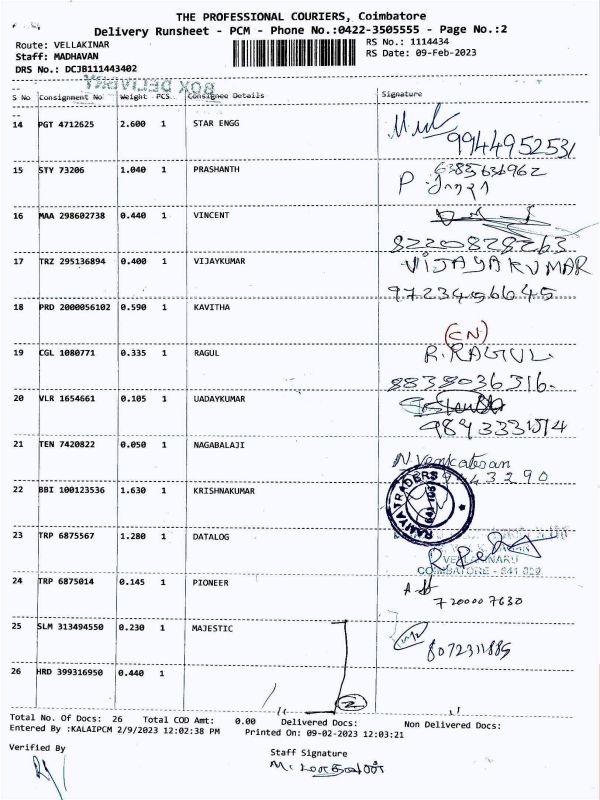 THE PROFESSIONAL COURIERS, Coimbatore
Delivery Runsheet - PCM - Phone No.:0422-3505555 - Page No.:2
Route: VELLAKINAR RS No.: 1114434
Staff: MADHAVAN RS Date: 09-Feb-2023
DRS No.: DCJB111443402
BOX DELIVERY
S No Consignment No Weight PCS Consignee Details Signature
14 PGT 4712625 2.600 1 STAR ENGG
9944952531
15 STY 73206 1.040 1 PRASHANTH 6385636962
16 MAA 298602738 0.440 1 VINCENT
8220828263
17 TRZ 295136894 0.400 1 VIJAYKUMAR VIJAYAKUMAR
9723456645
18 PRD 2000056102 0.590 1 KAVITHA
(CN)
19 CGL 1080771 0.335 1 RAGUL R.RAGUL
8838036316
20 VLR 1654661 0.105 1 UADAYKUMAR
21 TEN 7420822 0.050 1 NAGABALAJI N Venkatesan
22 BBI 100123536 1.630 1 KRISHNAKUMAR RAMYA TRADERS
23 TRP 6875567 1.280 1 DATALOG
COIMBATORE - 641 029
24 TRP 6875014 0.145 1 PIONEER
720000 7630
25 SLM 313494550 0.230 1 MAJESTIC
8072311885
26 HRD 399316950 0.440 1
2
Total No. Of Docs: 26 Total COD Amt: 0.00 Delivered Docs: Non Delivered Docs:
Entered By :KALAIPCM 2/9/2023 12:02:38 PM Printed On: 09-02-2023 12:03:21
Verified By Staff Signature